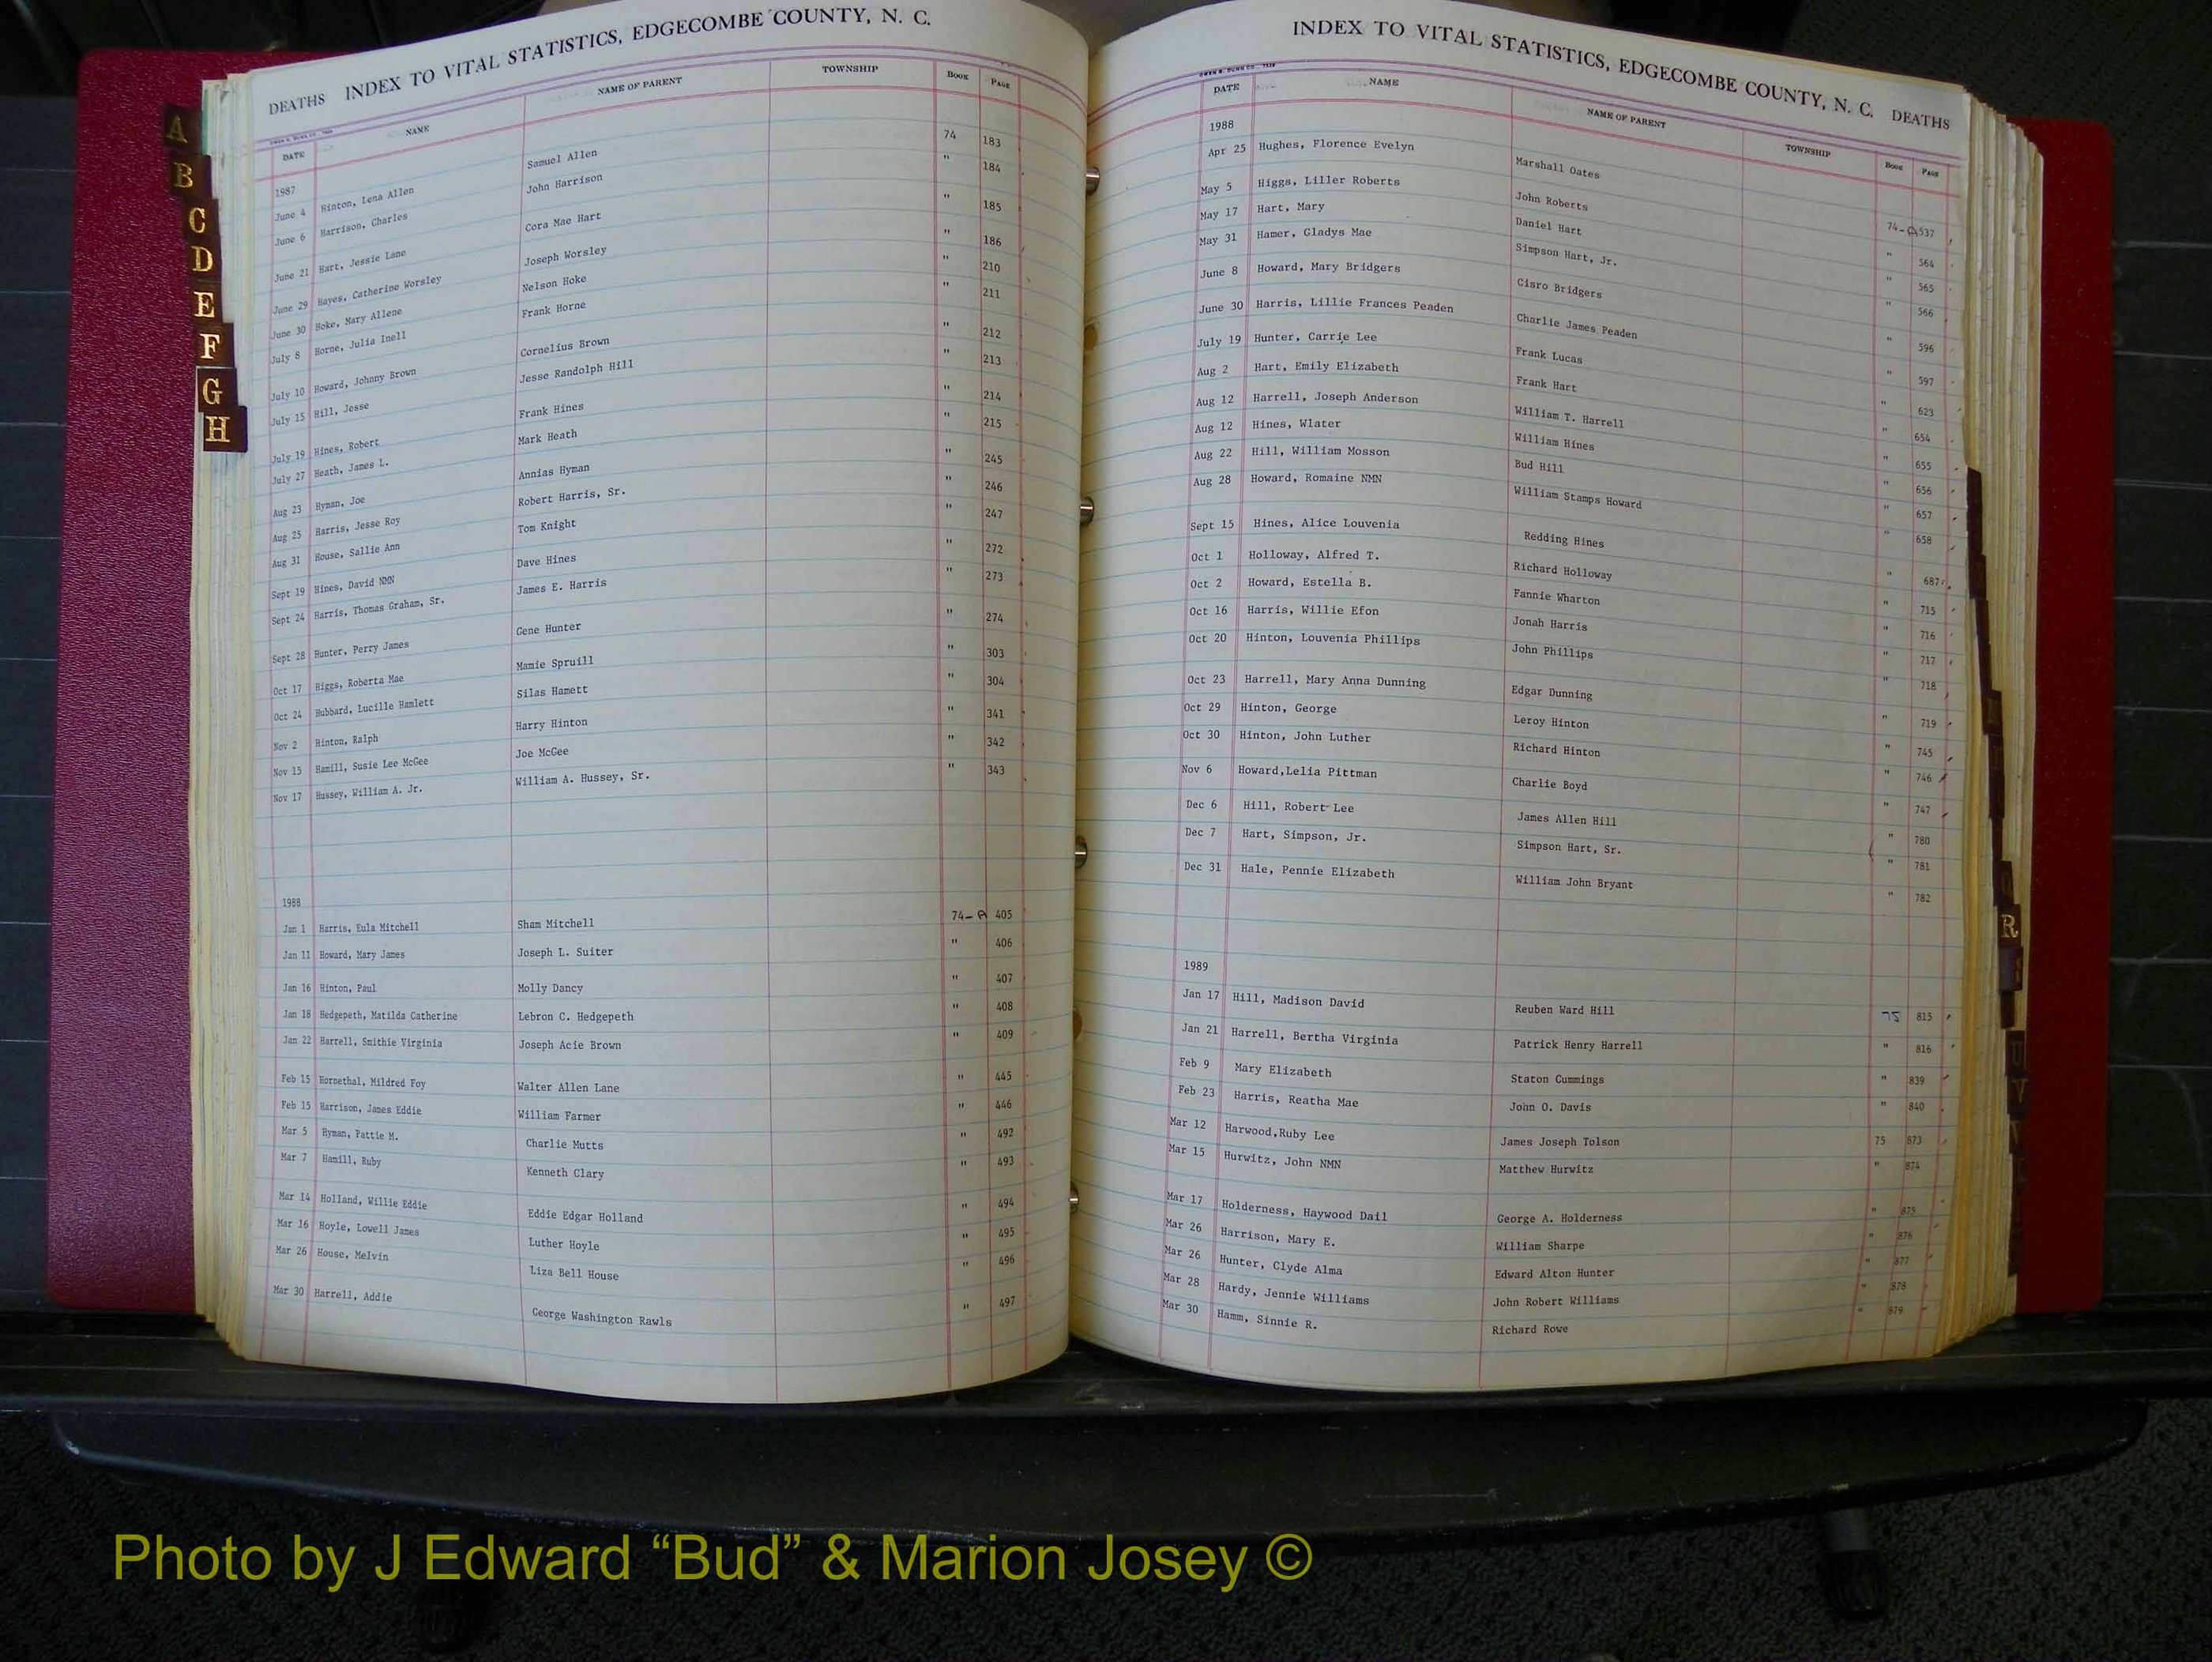 DEATHS INDEX TO VITAL STATISTICS, EDGECOMBE COUNTY, N. C.
DATE NAME NAME OF PARENT TOWNSHIP BOOK PAGE
1987
June 4 Hinton, Lena Allen Samuel Allen 74 183
June 6 Harrison, Charles John Harrison " 184
June 21 Hart, Jessie Lane Cora Mae Hart " 185
June 29 Hayes, Catherine Worsley Joseph Worsley " 186
June 30 Hoke, Mary Allene Nelson Hoke " 210
July 8 Horne, Julia Inell Frank Horne " 211
July 10 Howard, Johnny Brown Cornelius Brown " 212
July 15 Hill, Jesse Jesse Randolph Hill " 213
July 19 Hines, Robert Frank Hines " 214
July 27 Heath, James L. Mark Heath " 215
Aug 23 Hyman, Joe Annias Hyman " 245
Aug 25 Harris, Jesse Roy Robert Harris, Sr. " 246
Aug 31 House, Sallie Ann Tom Knight " 247
Sept 19 Hines, David NMN Dave Hines " 272
Sept 24 Harris, Thomas Graham, Sr. James E. Harris " 273
Sept 28 Hunter, Perry James Gene Hunter " 274
Oct 17 Higgs, Roberta Mae Mamie Spruill " 303
Oct 24 Hubbard, Lucille Hamlett Silas Hamett " 304
Nov 2 Hinton, Ralph Harry Hinton " 341
Nov 15 Hamill, Susie Lee McGee Joe McGee " 342
Nov 17 Hussey, William A. Jr. William A. Hussey, Sr. " 343
1988
Jan 1 Harris, Eula Mitchell Sham Mitchell 74-A 405
Jan 11 Howard, Mary James Joseph L. Suiter " 406
Jan 16 Hinton, Paul Molly Dancy " 407
Jan 18 Hedgepeth, Matilda Catherine Lebron C. Hedgepeth " 408
Jan 22 Harrell, Smithie Virginia Joseph Acie Brown " 409
Feb 15 Hornethal, Mildred Foy Walter Allen Lane " 445
Feb 15 Harrison, James Eddie William Farmer " 446
Mar 5 Hyman, Pattie M. Charlie Mutts " 492
Mar 7 Hamill, Ruby Kenneth Clary " 493
Mar 14 Holland, Willie Eddie Eddie Edgar Holland " 494
Mar 16 Hoyle, Lowell James Luther Hoyle " 495
Mar 26 House, Melvin Liza Bell House " 496
Mar 30 Harrell, Addie George Washington Rawls " 497
INDEX TO VITAL STATISTICS, EDGECOMBE COUNTY, N. C. DEATHS
DATE NAME NAME OF PARENT TOWNSHIP BOOK PAGE
1988
Apr 25 Hughes, Florence Evelyn Marshall Oates 74-A 537
May 5 Higgs, Liller Roberts John Roberts " 564
May 17 Hart, Mary Daniel Hart " 565
May 31 Hamer, Gladys Mae Simpson Hart, Jr. " 566
June 8 Howard, Mary Bridgers Cisro Bridgers " 596
June 30 Harris, Lillie Frances Peaden Charlie James Peaden " 597
July 19 Hunter, Carrie Lee Frank Lucas " 623
Aug 2 Hart, Emily Elizabeth Frank Hart " 654
Aug 12 Harrell, Joseph Anderson William T. Harrell " 655
Aug 12 Hines, Wlater William Hines " 656
Aug 22 Hill, William Mosson Bud Hill " 657
Aug 28 Howard, Romaine NMN William Stamps Howard " 658
Sept 15 Hines, Alice Louvenia Redding Hines " 687
Oct 1 Holloway, Alfred T. Richard Holloway " 715
Oct 2 Howard, Estella B. Fannie Wharton " 716
Oct 16 Harris, Willie Efon Jonah Harris " 717
Oct 20 Hinton, Louvenia Phillips John Phillips " 718
Oct 23 Harrell, Mary Anna Dunning Edgar Dunning " 719
Oct 29 Hinton, George Leroy Hinton " 745
Oct 30 Hinton, John Luther Richard Hinton " 746
Nov 6 Howard,Lelia Pittman Charlie Boyd " 747
Dec 6 Hill, Robert Lee James Allen Hill " 780
Dec 7 Hart, Simpson, Jr. Simpson Hart, Sr. " 781
Dec 31 Hale, Pennie Elizabeth William John Bryant " 782
1989
Jan 17 Hill, Madison David Reuben Ward Hill 75 815
Jan 21 Harrell, Bertha Virginia Patrick Henry Harrell " 816
Feb 9 Mary Elizabeth Staton Cummings " 839
Feb 23 Harris, Reatha Mae John O. Davis " 840
Mar 12 Harwood,Ruby Lee James Joseph Tolson 75 873
Mar 15 Hurwitz, John NMN Matthew Hurwitz " 874
Mar 17 Holderness, Haywood Dail George A. Holderness " 875
Mar 26 Harrison, Mary E. William Sharpe " 876
Mar 26 Hunter, Clyde Alma Edward Alton Hunter " 877
Mar 28 Hardy, Jennie Williams John Robert Williams " 878
Mar 30 Hamm, Sinnie R. Richard Rowe " 879
A
B
C
D
E
F
G
H
R
Photo by J Edward “Bud” & Marion Josey ©